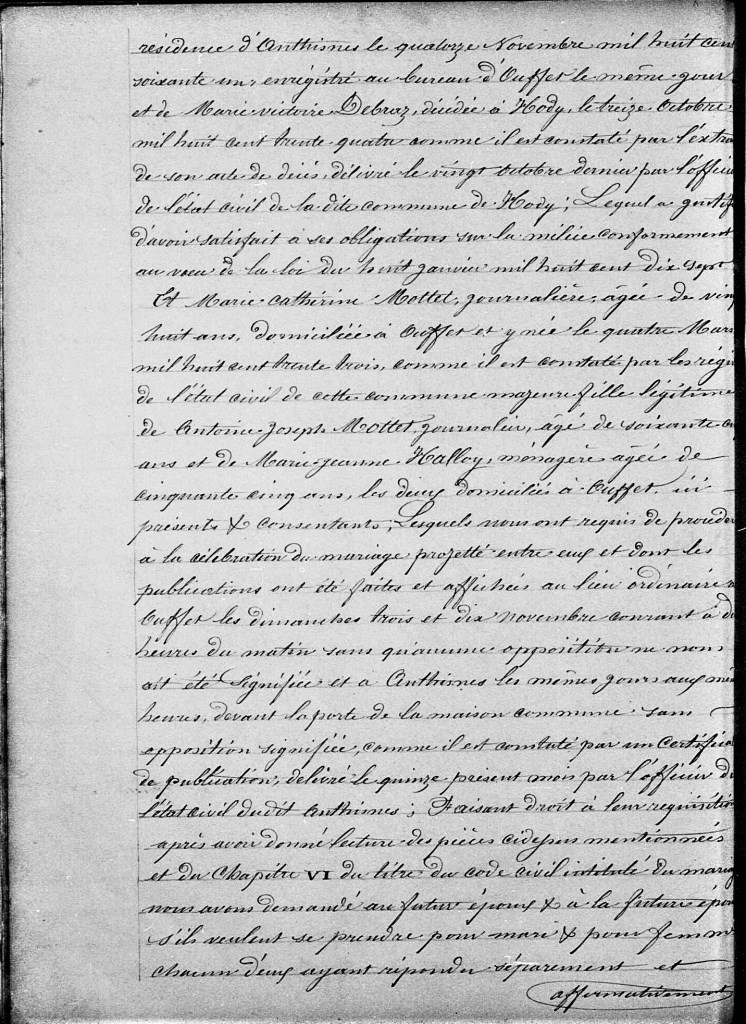 résidence d'Anthisnes le quatorze Novembre mil huit cent
soixante un, enrégistré au bureau d'Ouffet le même jour
et de Marie victoire Debraz, décédée à Hody, le treize Octobre
mil huit cent trente quatre comme il est constaté par l'extra
de son acte de décés, délivré le vingt Octobre dernier par l'officier
de l'état civil de la dite commune de Hody; Lequel a justifi
d'avoir satisfait à ses obligations sur la milice conformement
au vœu de la loi du huit janvier mil huit cent dix sept
Et Marie Cathérine Mottet, journalière, âgée de vin
huit ans, domiciliée à Ouffet et y née le quatre Mars
mil huit cent trente trois, comme il est constaté par les régi
de l'état civil de cette commune majeure fille légitime
de Antoine Joseph Mottet, journalier, âgé de soixante
ans et de Marie Jeanne Halloy, ménagère âgée de
cinquante cinq ans, les deux domiciliés à Ouffet, ici
présents & consentants; Lesquels nous ont requis de proceder
à la célébration du mariage projetté entre eux et dont les
publications ont été faites et affichées au lieu ordinaire
Ouffet les dimanches trois et dix novembre courant à di
heures du matin sans qu'aucune opposition ne nous
ait été signifiée et à Anthisnes les mêmes jours aux mê
heures, devant la porte de la maison commune sans
opposition signifiée, comme il est constaté par un certifica
de publication, délivré le quinze présent mois par l'officier de
l'état civil dudit Anthisnes; Faisant droit à leur requisition
après avoir donné lecture des piéces cidessus mentionnées
et du Chapitre VI du titre du code civil intitulé du mariag
nous avons demandé au futur époux & à la future épou
s'ils veulent se prendre pour mari & pour femme
chacun d'eux ayant répondu séparement et
affirmativement